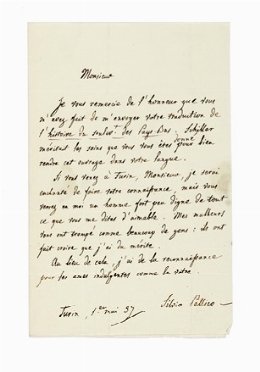 Monsieur
Je vous remercie de l'honneur que vous
m'avez fait de m'envoyer votre traduction de
l'histoire du soulevt des Pays Bas. Schiller
méritait les soins que vous vous êtes donné pour bien
rendre cet ouvrage dans votre langue.
Si vous venez à Turin, Monsieur, je serai
enchanté de faire votre connaissance, mais vous
verrez en moi un homme fort peu digne de tout
ce que vous me dites d'aimable. Mes malheurs
vous ont trompé comme beaucoup de gens: ils ont
fait croire que j'ai du mérite.
Au lieu de cela, j'ai de la reconnaissance
pour les ames indulgentes comme la vôtre.
Turin, 1er mai 37
Silvio Pellico